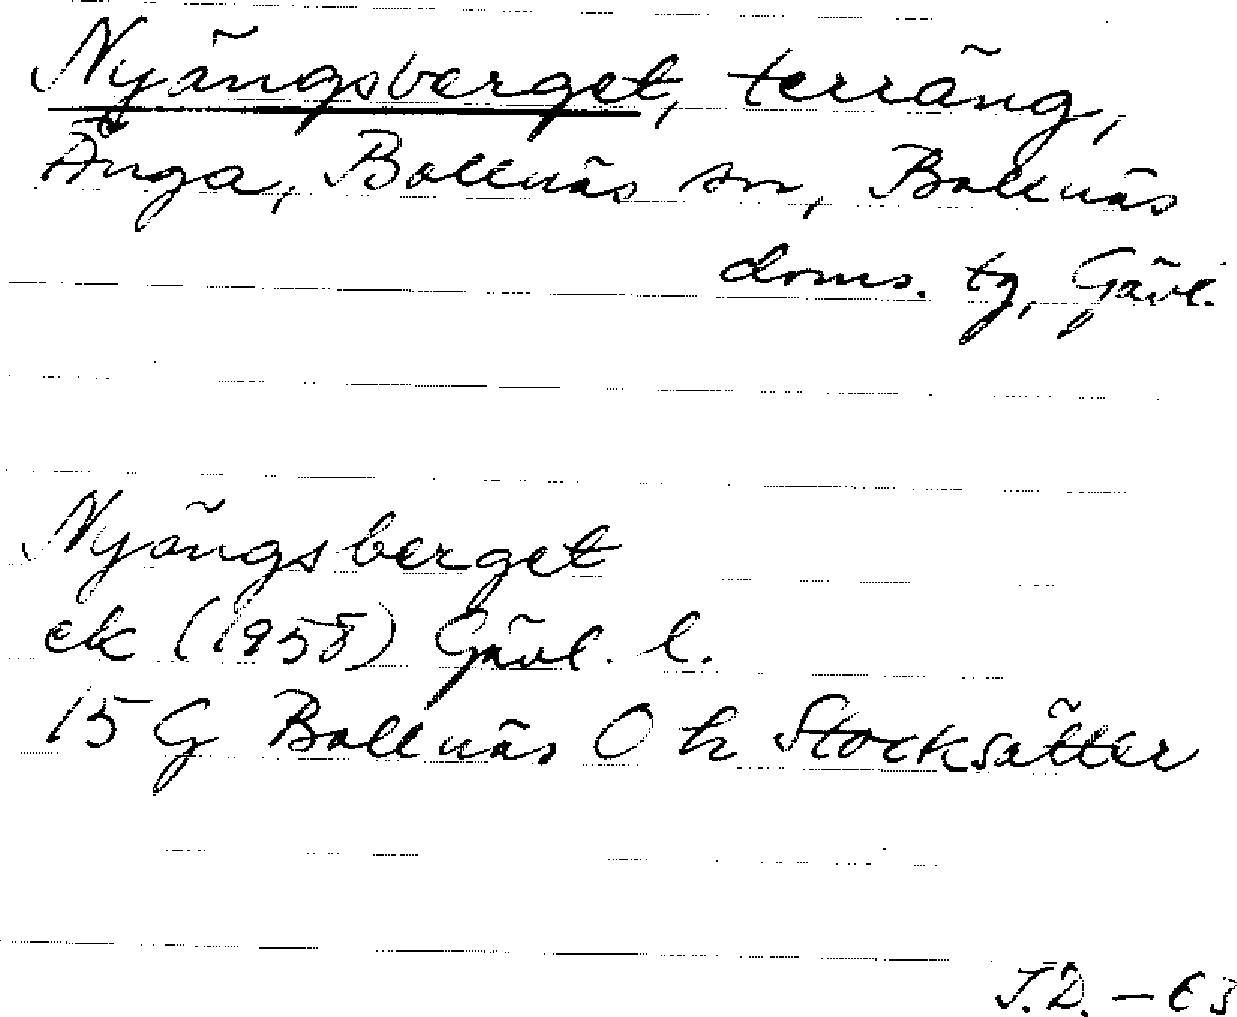 Nyängsberget, terräng,
Änga, Bollnäs sn, Bollnäs
doms. tg, Gävl.
Nyängsberget
ek (1958) Gävl. l.
15 G Bollnäs O h Stocksätter
J.D. – 63